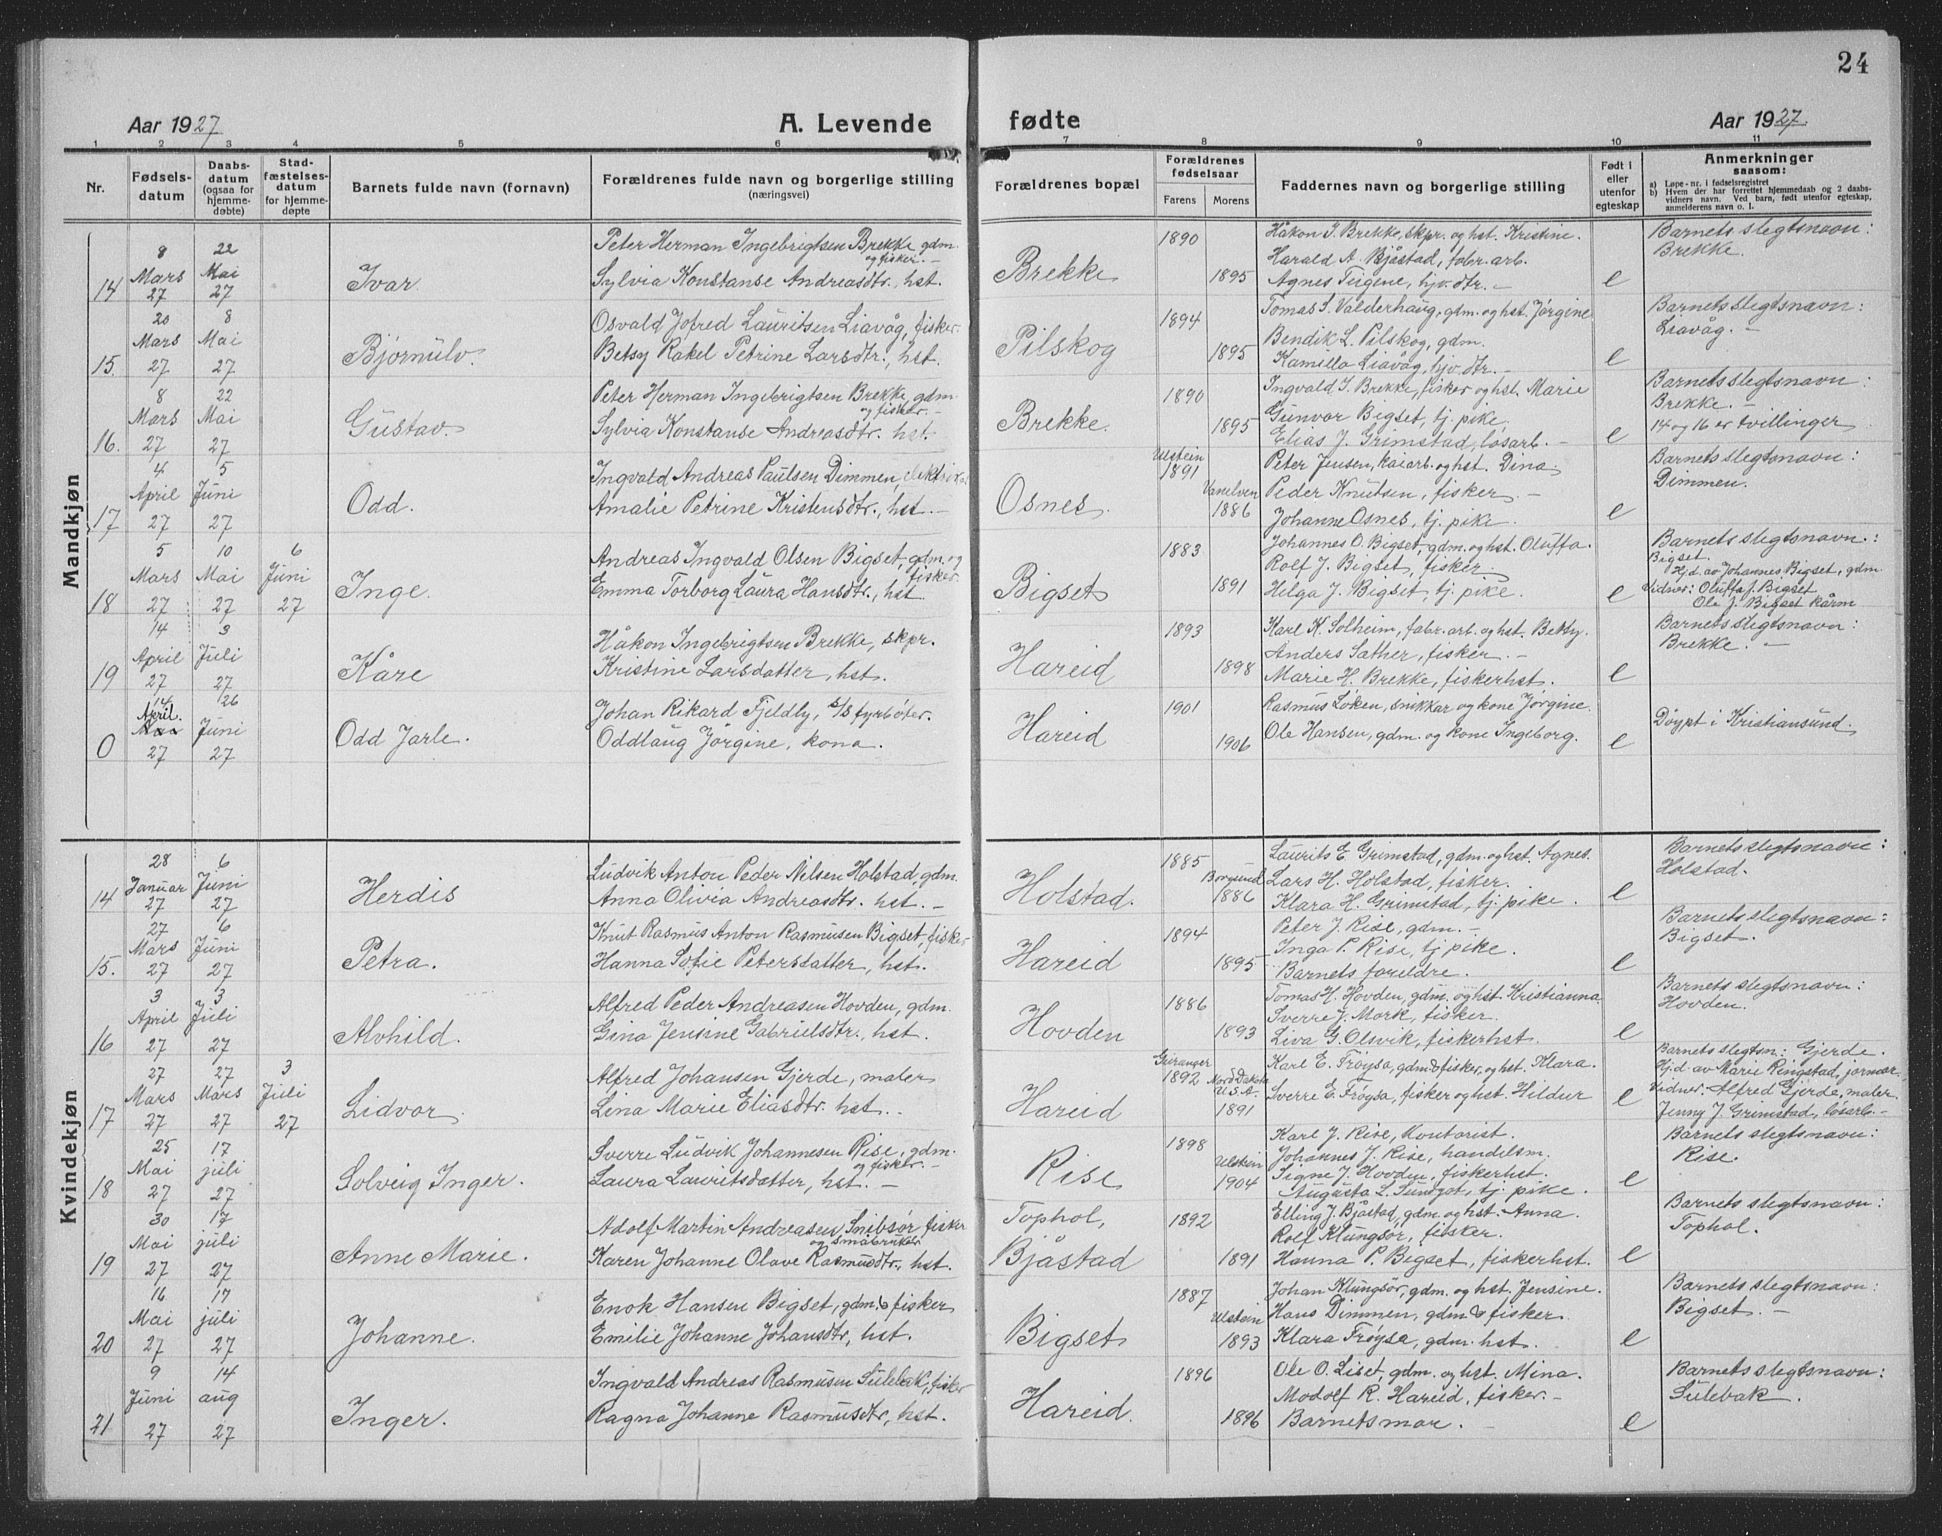 24
Aar 1927
A. Levende
fødte
Aar 1927
1 2 3 4 5 6 7 8 9 10 11
Nr.
Fødsels-
datum
Daabs-
datum
(ogsaa for
hjemme-
døbte)
Stad-
fæstelses-
datum
for hjemme-
døpte
Barnets fulde navn (fornavn)
Forældrenes fulde navn og borgerlige stilling
(næringsvei)
Forældrenes bopæl
Forældrenes
fødselsaar
Farens
Morens
Faddernes navn og borgerlige stilling
Født i
eller
utenfor
egteskap
Anmerkninger
saasom:
a) Løpe-nr. i fødselsregistret
b) Hvem der har forrettet hjemmedaab og 2 daabs-
vidners navn. Ved barn, født utenfor egteskap,
anmelderens navn o. l.
Mandkjøn
14
8 Mars 27
22 Mai 27
Ivar
Peter Herman Ingebrigtsen Brekke, gdm.
og fisker. –
Sylvia Konstanse Andreasdtr., hst.
Brekke
1890
1895
Håkon I. Brekke, skpr. og hst. Kristine.
Harald A. Bjåstad, fabr. arb.
Agnes Teigene, hjv. dtr. –
e
Barnets slegtsnavn:
Brekke.
15.
20 Mars 27
8 Mai 27
Bjørnulv.
Osvald Jofred Lauritsen Liavåg, fisker.
Betsy Rakel Petrine Larsdtr., hst.
Pilskog
1894
1895
Tomas S. Valderhaug, gdm. og hst. Jørgine
Bendik L. Pilskog, gdm.
Kamilla Liavåg, hjv. dtr. –
e
Barnets slegtsnavn:
Liavåg. –
16.
8 Mars 27
22 Mai 27
Gustav.
Peter Herman Ingebrigtsen Brekke, gdm.
og fisker. –
Sylvia Konstanse Andreasdtr. hst.
Brekke.
1890
1895
Ingvald I. Brekke, fisker og hst. Marie
Gunvor Bigset, tj. pike.
Elias J. Grimstad, løsarb. –
e
Barnets slegtsnavn:
Brekke. –
14 og 16 er tvillinger
17
4 April 27
5 Juni 27
Odd.
Ingvald Andreas Paulsen Dimmen, elektriker
Amalie Petrine Kristensdtr., hst. –
Osnes.
Ulstein
1891
Vanelven
1886
Peter Jensen, kaiarb. og hst. Dina
Peder Knutsen, fisker. –
Johanne Osnes, tj. pike.
e
Barnets slegtsnavn:
Dimmen.
18
5 Mars 27
10 Mai 27
6 Juni 27
Inge.
Andreas Ingvald Olsen Bigset, gdm. og
fisker.
Emma Torborg Laura Hansdtr., hst.
Bigset
1883
1891
Johannes O. Bigset, gdm. og hst. Oluffa.
Rolf J. Bigset, fisker.
Helga J. Bigset, tj. pike.
e
Barnets slegtsnavn:
Bigset.
Hj.d. av Johannes Bigset, gdm.
Vidner: Oluffa J. Bigset
Ole J. Bigset kårm
19
14 April 27
3 Juli 27
Kåre
Håkon Ingebrigtsen Brekke, skpr.
Kristine Larsdatter, hst.
Hareid
1893
1898
Karl K. Solheim, fabr. arb. og hst. Betty.
Anders Sather, fisker. –
Marie H. Brekke, fiskerhst.
e
Barnets slegtsnavn:
Brekke. –
0
14 April. Mai 27
26 Juni 27
Odd Jarle.
Johan Rikard Fjeldly, S/S fyrbøter.
Oddlaug Jørgine, kona.
Hareid
1901
1906
Rasmus Løken, snikkar og kone Jørgine.
Ole Hansen, gdm. og kone Ingeborg.
e
Døypt i Kristiansund.
Kvindekjøn
14
28 Januar 27
6 Juni 27
Herdis
Ludvik Anton Peder Nilsen Holstad, gdm.
Anna Olivia Andreasdtr. hst. –
Holstad.
1885
Borgund
1886
Laurits E. Grimstad, gdm. og hst. Agnes.
Lars H. Holstad, fisker.
Klara H. Grimstad, tj. pike.
e
Barnets slegtsnavn:
Holstad.
15.
27 Mars 27
6 Juni 27
Petra.
Knut Rasmus Anton Rasmusen Bigset, fisker
Hanna Sofie Petersdatter, hst.
Hareid
1894
1895
Peter J. Rise, gdm. –
Inga P. Rise, tj. pike.
Barnets foreldre.
e
Barnets slegtsnavn:
Bigset.
16
3 April 27
3 Juli 27
Alvhild.
Alfred Peder Andreasen Hovden, gdm.
Gina Jensine Gabrielsdtr., hst.
Hovden
1886
1893
Tomas H. Hovden, gdm. og hst. Kristianna
Sverre J. Mork, fisker.
Liva G. Olsvik, fiskerhst.
e
Barnets slegtsnavn:
Hovden.
17
27 Mars 27
27 Mars 27
3 Juli 27
Lidvor.
Alfred Johansen Gjerde, maler
Lina Marie Eliasdtr. hst. –
Hareid
Geiranger
1892
Nord Dakota
U.S.A.
1891
Karl E. Frøysa, gdm. & fisker, og hst. Klara.
Sverre E. Frøysa, fisker og hst. Hildur
e
Barnets slegtsn: Gjerde.
Hj.d av Marie Ringstad, jormor.
Vidner: Alfred Gjerde, maler
Jenny J. Grimstad, løsarb. –
18
25 Mai 27
17 juli 27
Solveig Inger.
Sverre Ludvik Johannesen Rise, gdm.
og fisker. –
Laura Lauritsdatter, hst. –
Rise
1898
Ulstein
1904
Karl J. Rise, kontorist.
Johannes J. Rise, handelsm.
Signe J. Hovden, fiskerhst.
Augusta L. Sundgot, tj. pike.
e
Barnets slegtsnavn:
Rise.
19
30 Mai 27
17 juli 27
Anne Marie.
Adolf Martin Andreasen Snibsør, fisker
og småbruker
Karen Johanne Olave Rasmusdtr., hst.
Tophol,
Bjåstad
1892
1891
Elling J. Bjåstad, gdm. og hst. Anna.
Rolf Klungsør, fisker.
Hanna P. Bigset, fiskerhst.
e
Barnets slegtsnavn:
Tophol.
20
16 Mai 27
17 juli 27
Johanne.
Enok Hansen Bigset, gdm. & fisker
Emilie Johanne Johansdtr, hst.
Bigset
1887
Ulstein
1893
Johan Klungsör, gdm. og hst. Jensine.
Hans Dimmen, gdm. & fisker.
Klara Frøysa, gdm. hst.
e
Barnets slegtsnavn:
Bigset. –
21
9 Juni 27
14 aug 27
Inger.
Ingvald Andreas Rasmusen Sulebak, fisker
Ragna Johanne Rasmusdtr, hst.
Hareid.
1896
1896
Ole O. Liset, gdm. og hst. Mina.
Modolf R. Hareid, fisker. –
Barnets mor. –
e
Barnets slegtsnavn:
Sulebak.